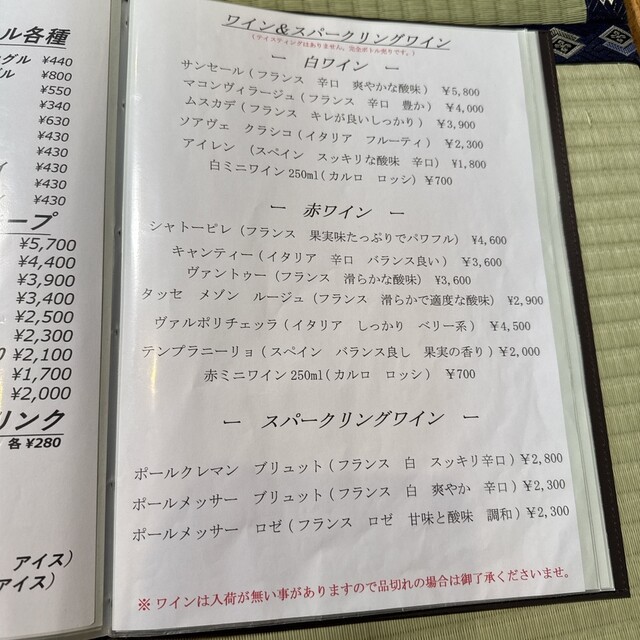 ル各種
グル ¥440
ル ¥800
¥550
¥340
¥630
¥430
¥430
¥430
¥430
ープ
¥5,700
¥4,400
¥3,900
¥3,400
¥2,500
¥2,300
0 ¥2,100
¥1,700
¥2,000
リンク
各 ¥280
アイス)
アイス)
ワイン&スパークリングワイン
(テイスティングはありません。完全ボトル売りです。)
ー 白ワイン ー
サンセール(フランス 辛口 爽やかな酸味) ¥5,800
マコンヴィラージュ(フランス 辛口 豊か) ¥4,000
ムスカデ(フランス キレが良いしっかり) ¥3,900
ソアヴェ クラシコ(イタリア フルーティ) ¥2,300
アイレン(スペイン スッキリな酸味 辛口) ¥1,800
白ミニワイン250ml(カルロ ロッシ) ¥700
ー 赤ワイン ー
シャトーピレ(フランス 果実味たっぷりでパワフル) ¥4,600
キャンティー(イタリア 辛口 バランス良い) ¥3,600
ヴァントゥー(フランス 滑らかな酸味) ¥3,600
タッセ メゾン ルージュ(フランス 滑らかで適度な酸味) ¥2,900
ヴァルポリチェッラ(イタリア しっかり ベリー系) ¥4,500
テンプラニーリョ(スペイン バランス良し 果実の香り) ¥2,000
赤ミニワイン250ml(カルロ ロッシ) ¥700
ー スパークリングワイン ー
ポールクレマン ブリュット(フランス 白 スッキリ辛口) ¥2,800
ポールメッサー ブリュット(フランス 白 爽やか 辛口) ¥2,300
ポールメッサー ロゼ(フランス ロゼ 甘味と酸味 調和) ¥2,300
※ ワインは入荷が無い事がありますので品切れの場合は御了承くださいませ。